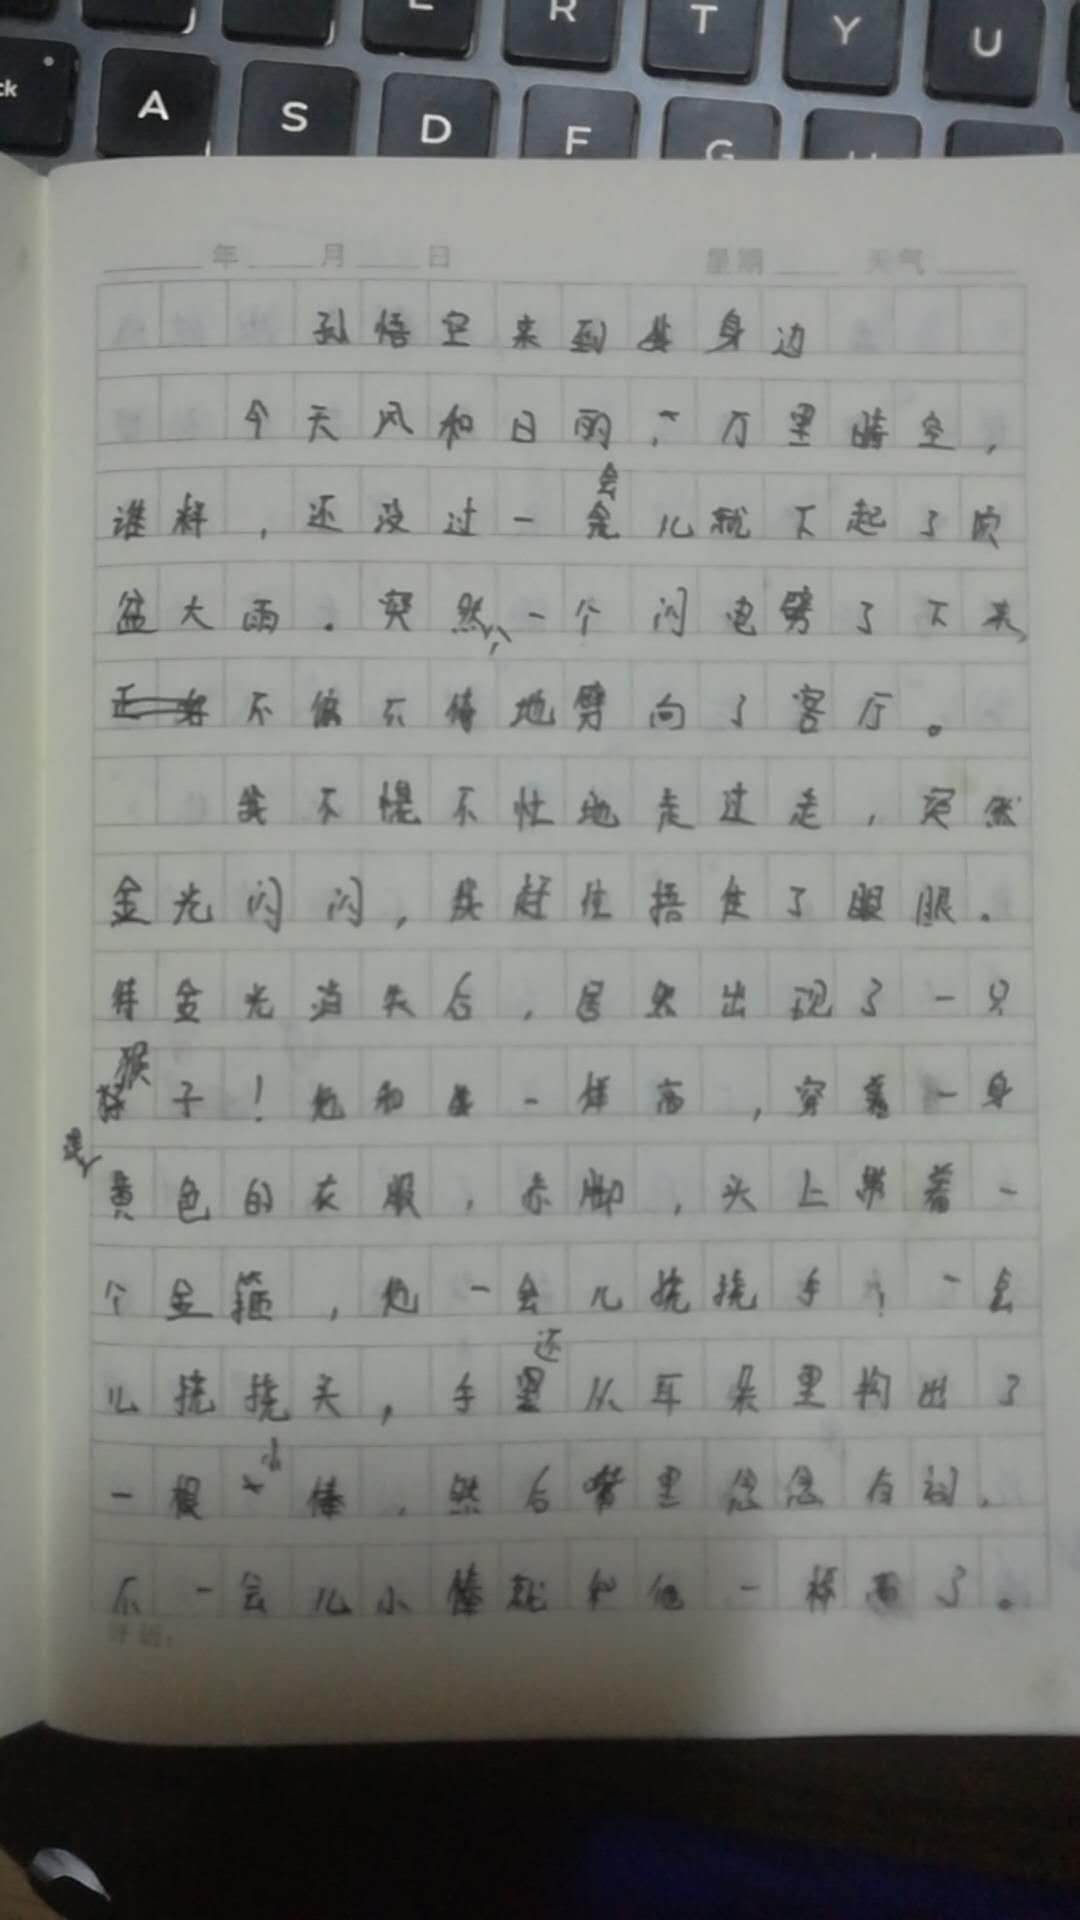 E R T Y U
ck A S D F G H
年 月 日 星期 天气
孙悟空来到我身边
今天风和日丽，万里晴空，
谁料，还没过一会儿就下起了倾
盆大雨。突然，一个闪电劈了下来，
不偏不倚地劈向了客厅。
我不慌不忙地走过走，突然
金光闪闪，我赶忙捂住了眼眼。
待金光消失后，居然出现了一只
猴子！他和我一样高，穿着一身
黄色的衣服，赤脚，头上带着一
个金箍，他一会儿挠挠手，一会
儿挠挠头，手里还从耳朵里掏出了
一根小棒，然后嘴里念念有词，
不一会儿小棒就和他一样高了。